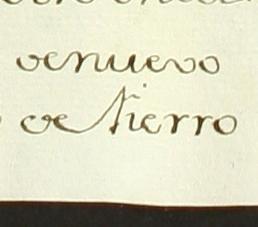 de nuevo
de fierro